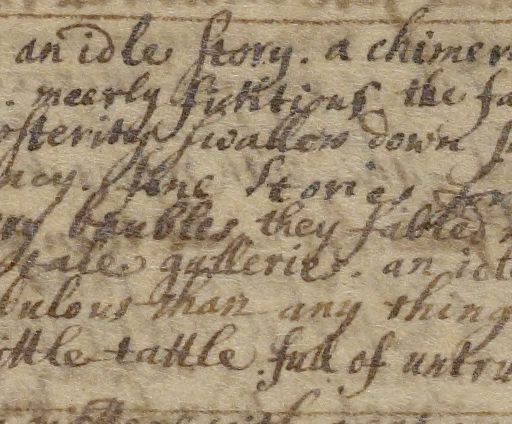 an idle story. a chimer
meerly fictitious the fa
osterity swallow down s
acy. fine Stories
ery baubles they fabled
tale gulleries. an idle
bulous than any thing
ittle tattle. full of untru